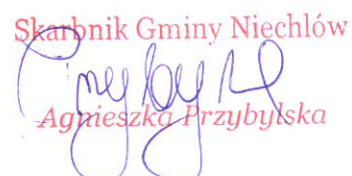 Skarbnik Gminy Niechlów
Agnieszka Przybylska